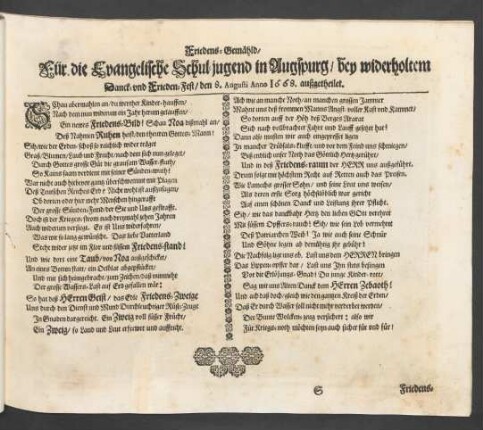 Friedens-Gemähld/
Für die Evangelische Schul-jugend in Augspurg/ bey widerholtem
Danck- und Frieden-Fest/ den 8. Augusti Anno 1668. außgetheilet.
Schau abermahlen an/ du werther Kinder-hauffen/
Nach dem nun widerum ein Jahr herum geloffen/
Ein neues Friedens-Bild! Schau Noa
Deß Nahmen Ruhen heist/ den theuren Gottes-Mann:
Graß/ Blumen/ Laub und Frucht/ nach dem sich nun geleget/
Durch Gottes große Güt die grausam Wasser-fluth/
So Kains saam verdient mit seiner Sünden-wuth/
War nicht auch hiebevor gantz überschwemmt mit Plagen
Deß Teutschen Reiches Erd?
Ob dorten oder hier mehr Menschen hingerafft
Der große Sünden-Feind der sie und uns gestrafft.
Doch ist der Krieges-strom nach dreymahl zehen Jahren
Auch widerum versiegt. Es ist uns widerfahren/
Was wir so lang gewünscht. Das liebe Vatterland
Steht wider jetzt im Flor und süssem Friedens-stand!
Und wie dort eine Taub/ von Noa außgeschicket/
der großen Wassers-Last auf Erd gefallen wär:
So hat deß HErren Geist/ das Edle Friedens-Zweige
Uns durch den Dienst und Mund Durchleuchtiger
In Gnaden dargereicht. Ein Zweig voll süsser Frücht/
Ein Zweig/ so Land und Leut erfreut und auffricht.
Ach wie an mancher Noth/ an manchem großen Jammer
Mahnt uns deß frommen Manns Angst-voller Kast und Kammer/
So dorten auff der Höh deß Berges Ararat
Sich nach vollbrachter Fahrt und Lauff gesetzet hat!
Dann also musten wir auch offt im Grund uns wiegen/
In mancher Trübsals-Klufft und vor dem Feind uns schmiegen/
Biß endlich unser Noth das Göttlich Hertz gerührt/
Und in des Friedens-raum der HERR uns außgeführt.
Drum folge nun höchstem Recht auf Retten auch das Preisen.
Wie Lamechs grosser Sohn/ und seine Leut uns weisen/
Als deren erste Sorg höchstlöblich war gericht
Auf einen schönen Danck und Leistung ihrer Pflicht.
Sih/ wie das danckbahr Hertz den lieben GOtt verehret
Mit süssem Opffer-rauch! Sih/ wie sein Lob vermehret
Deß Patriarchen Weib! Ja wie auch seine Schnür
Und Söhne legen ab demühtig ihr gebühr!
Die Nachfolg ligt uns ob. Last uns den HERREN bringen
Das Lippen-opffer dar/ Last uns Ihn stets besingen
Vor die Erlösungs-Gnad! Du junge Kinder-rott/
Sag mit uns Allen Danck dem HErren Zebaoth!
Und ach daß doch/ gleich wie den gantzen Kreiß der Erden/
Daß Er durch Wasser soll nicht mehr verderbet werden/
Der Bunte Wolcken-zeug versichert: also wir
Für Kriegs-noth möchten seyn auch sicher für und für!
S
Friedens-